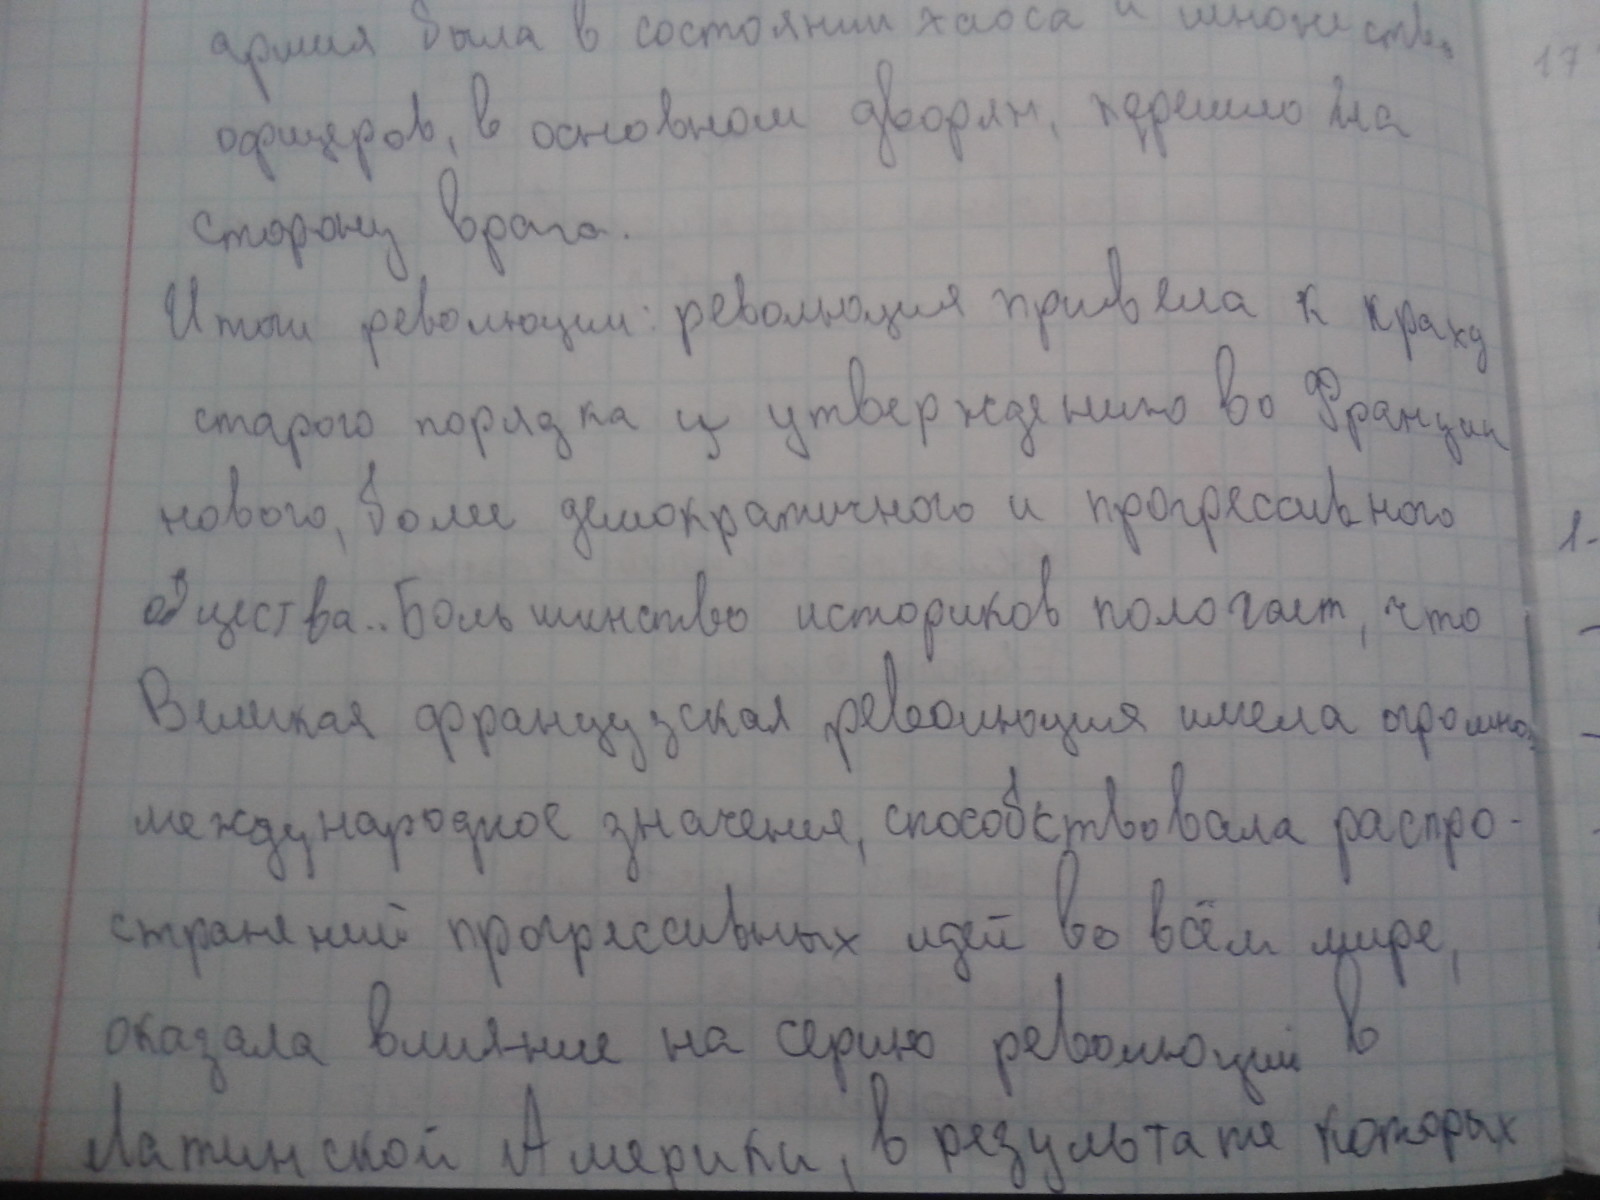 армия была в состоянии хаоса и множество
офицеров, в основном дворян, перешло на
сторону врага.
Итоги революции: революция привела к краху
старого порядка и утверждению во Франции
нового, более демократичного и прогрессивного
общества.. Большинство историков пологает, что
Великая французская революция имела огромное
международное значения, способствовала распро-
странений прогрессивных идей во всём мире,
оказала влияние на серию революций в
Латинской Америки, в результате которых
17
1-